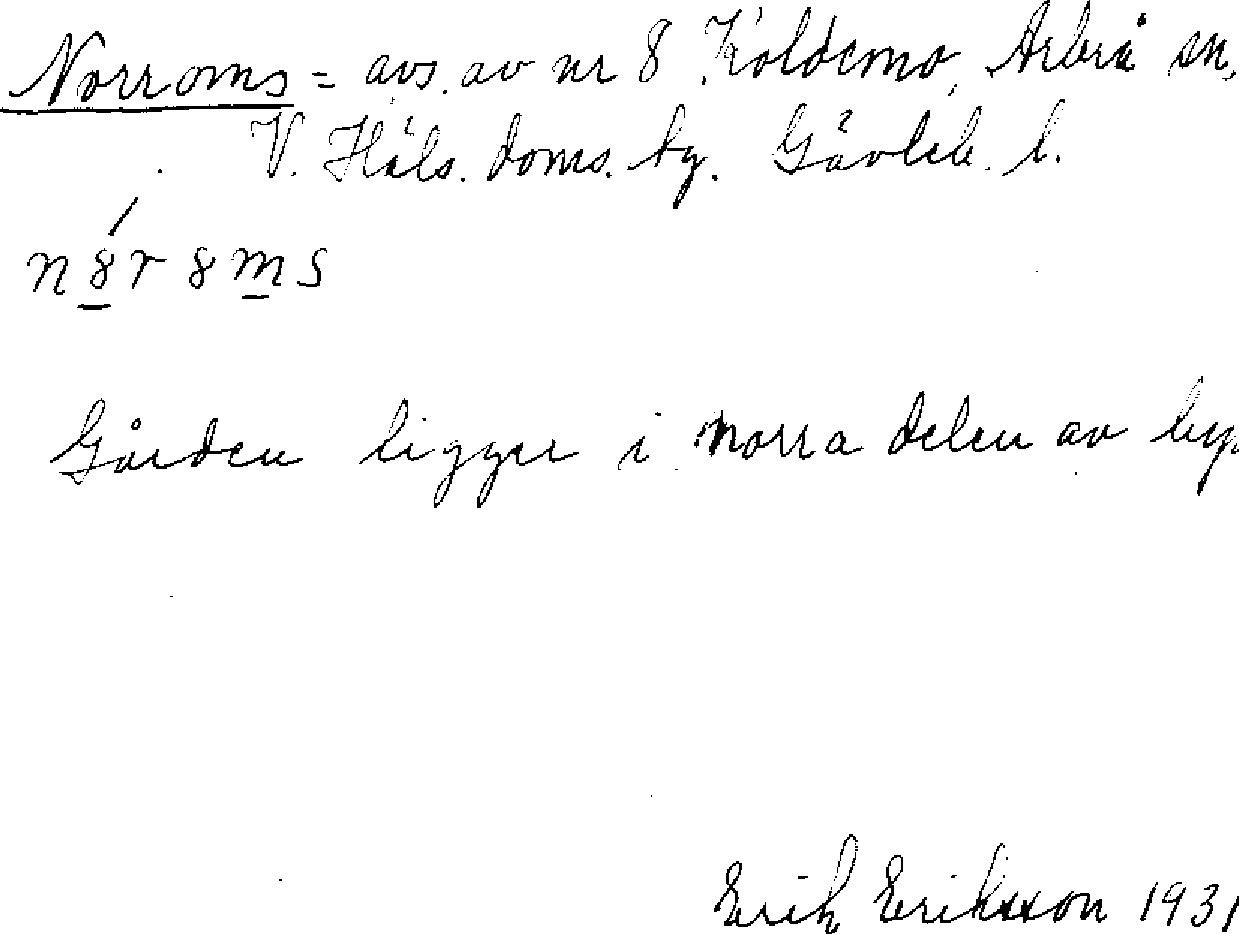 Norroms = avs. av nr 8 Koldemo, Arbrå sn,
V. Häls. doms. hg. Gävleb. l.
n8r8ms
Gården ligger i norra delen av byn
Erik Eriksson 1931